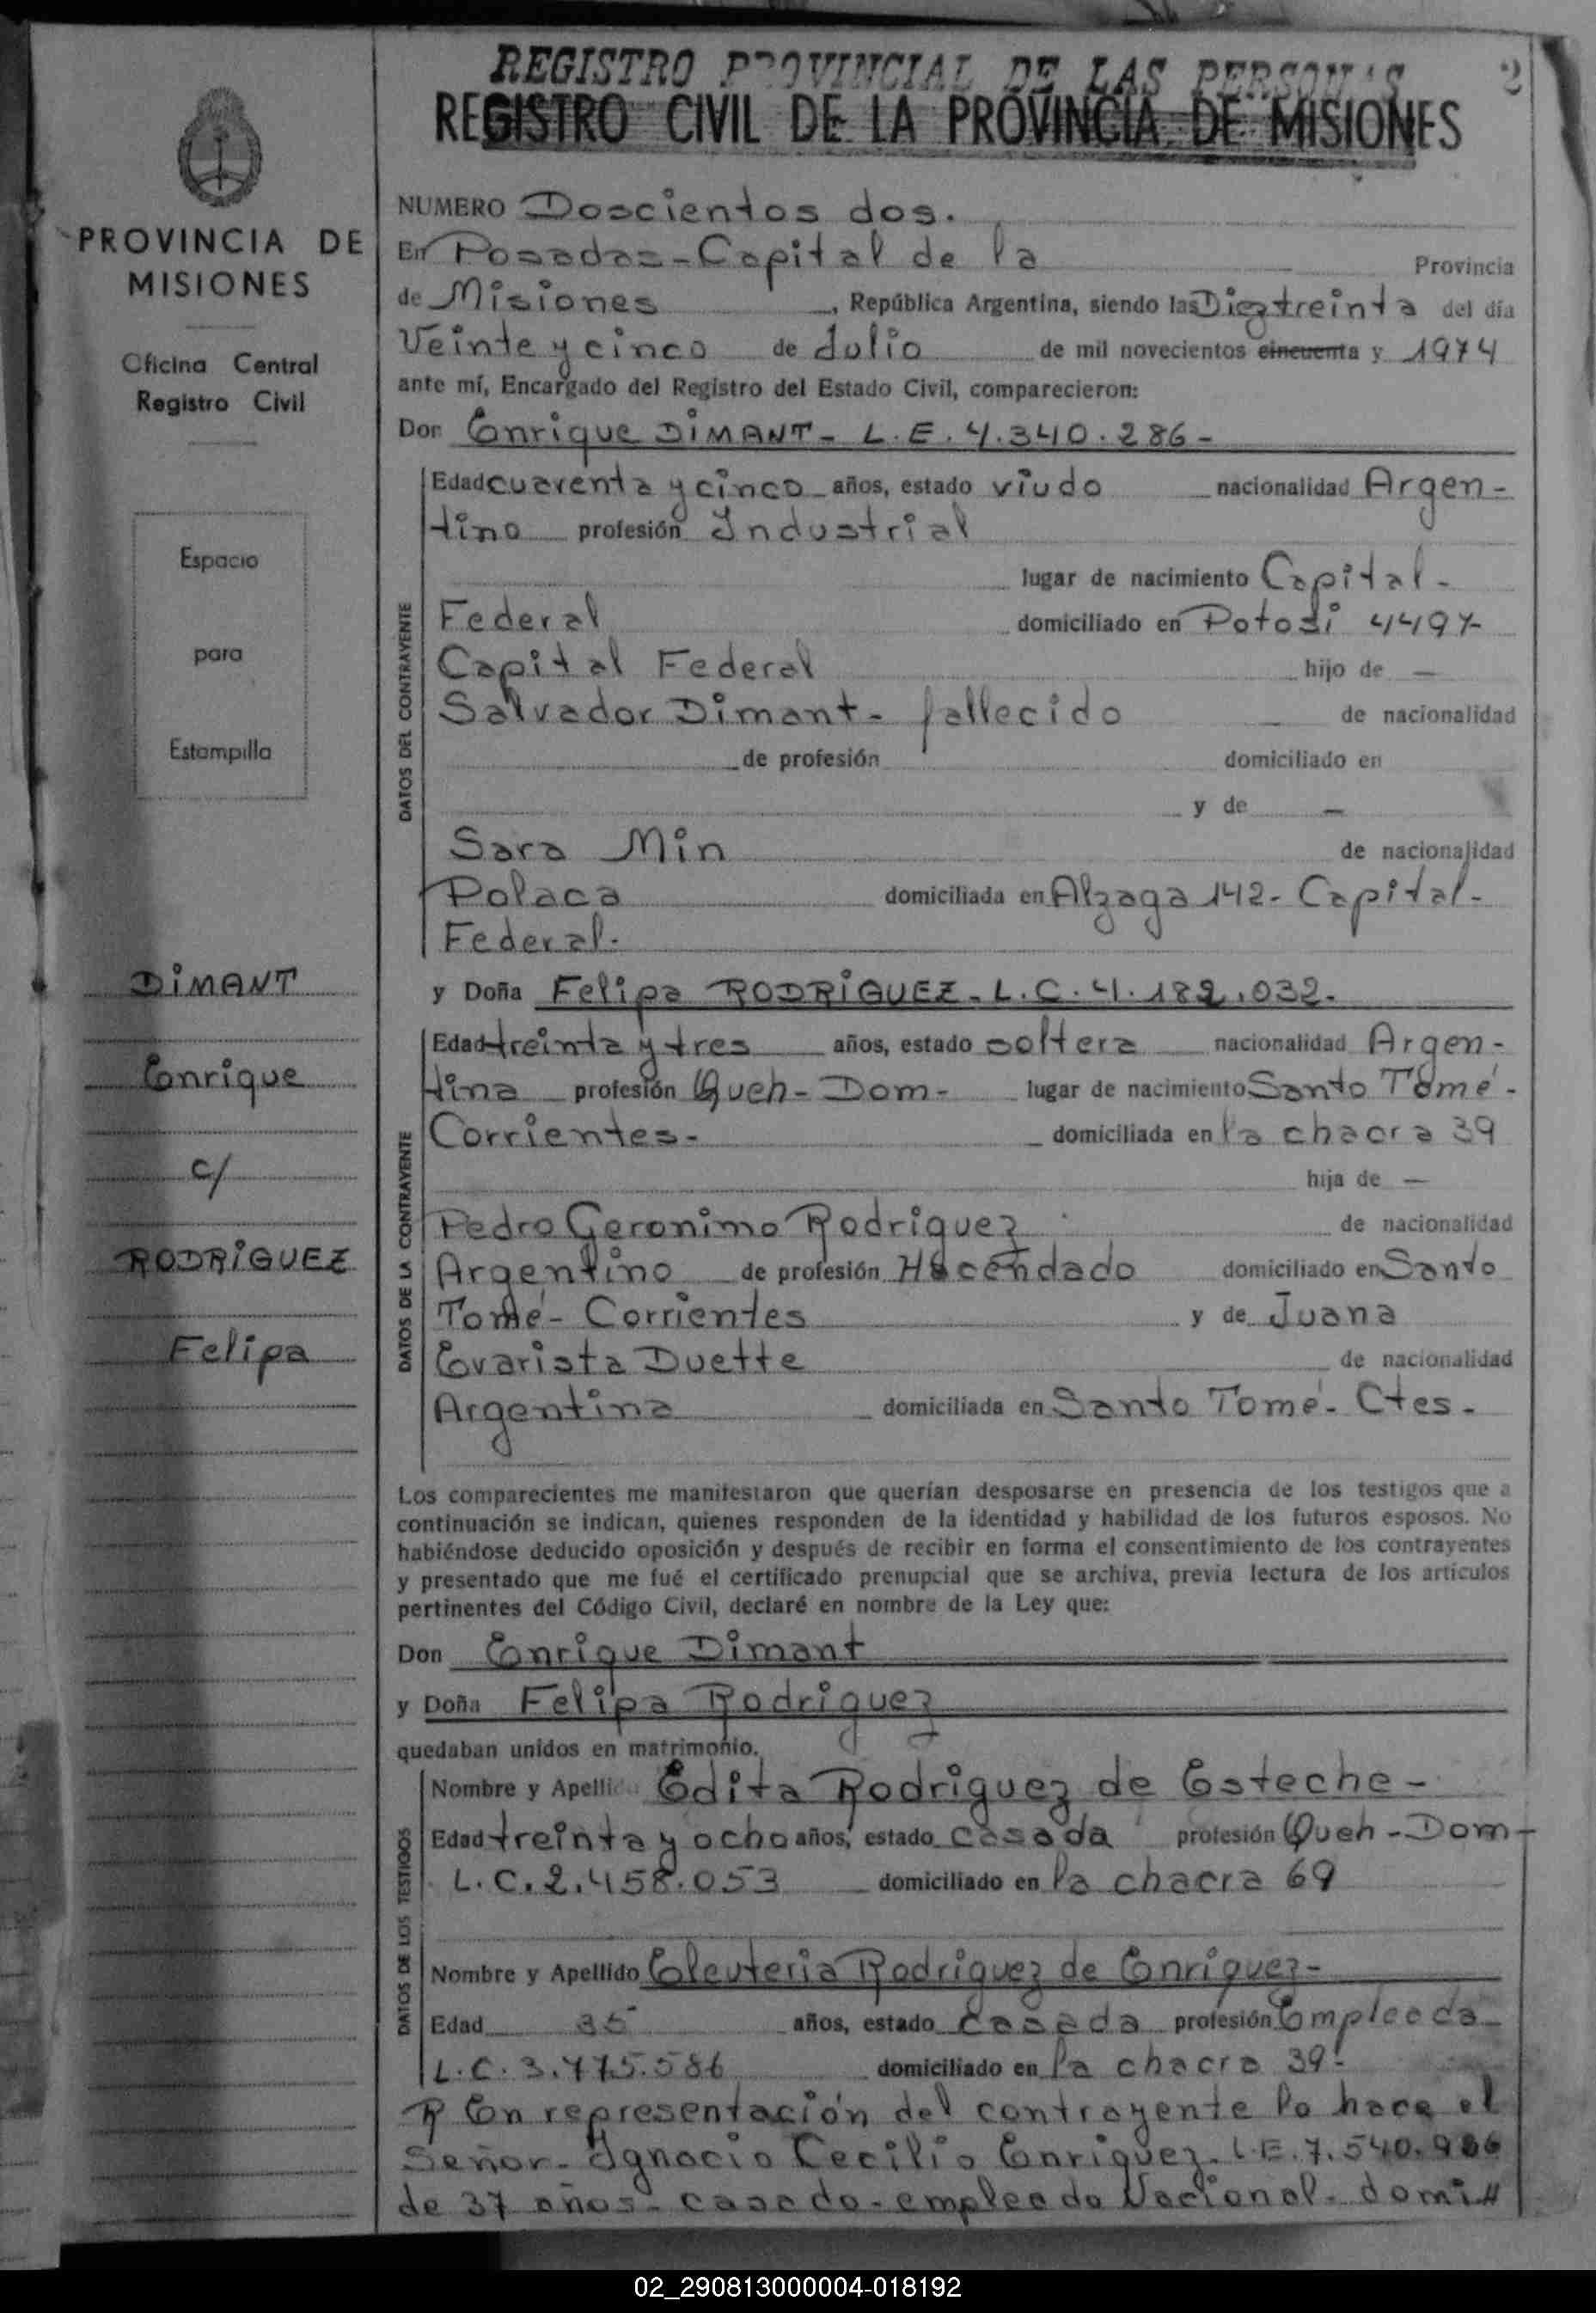 REGISTRO PROVINCIAL DE LAS PERSONAS
2
REGISTRO CIVIL DE LA PROVINCIA DE MISIONES
PROVINCIA DE
MISIONES
Oficina Central
Registro Civil
Espacio
para
Estampilla
DIMANT
Enrique
c/
RODRIGUEZ
Felipa
NUMERO Doscientos dos.
En Posadas - Capital de la Provincia
de Misiones, República Argentina, siendo las Diez treinta del día
Veinte y cinco de Julio de mil novecientos cincuenta y 1974
ante mí, Encargado del Registro del Estado Civil, comparecieron:
Don Enrique DIMANT - L.E. 4.340.286 -
DATOS DEL CONTRAYENTE
Edad cuarenta y cinco años, estado viudo nacionalidad Argen-
tino profesión Industrial
lugar de nacimiento Capital -
Federal domiciliado en Potosi 4497-
Capital Federal hijo de —
Salvador Dimant - fallecido de nacionalidad
de profesión domiciliado en
y de —
Sara Min de nacionalidad
Polaca domiciliada en Alzaga 142 - Capital -
Federal.
y Doña Felipa RODRIGUEZ - L.C. 4.182.032.
DATOS DE LA CONTRAYENTE
Edad treinta y tres años, estado soltera nacionalidad Argen-
tina profesión Queh - Dom - lugar de nacimiento Santo Tomé -
Corrientes - domiciliada en la chacra 39
hija de —
Pedro Geronimo Rodriguez de nacionalidad
Argentino de profesión Hacendado domiciliado en Santo
Tomé - Corrientes y de Juana
Evarista Duette de nacionalidad
Argentina domiciliada en Santo Tomé - Ctes -
Los comparecientes me manifestaron que querían desposarse en presencia de los testigos que a
continuación se indican, quienes responden de la identidad y habilidad de los futuros esposos. No
habiéndose deducido oposición y después de recibir en forma el consentimiento de los contrayentes
y presentado que me fué el certificado prenupcial que se archiva, previa lectura de los artículos
pertinentes del Código Civil, declaré en nombre de la Ley que:
Don Enrique Dimant
y Doña Felipa Rodriguez
quedaban unidos en matrimonio.
DATOS DE LOS TESTIGOS
Nombre y Apellido Edita Rodriguez de Esteche -
Edad treinta y ocho años, estado casada profesión Queh - Dom -
L.C. 2.458.053 domiciliado en la chacra 69
Nombre y Apellido Eleuteria Rodriguez de Enriquez -
Edad 35 años, estado casada profesión Empleada
L.C. 3.775.586 domiciliado en la chacra 39 -
En representación del contrayente lo hace el
Señor - Ignacio Cecilio Enriquez - L.E. 7.540.986
de 37 años - casado - empleado Nacional - domi
02_290813000004-018192